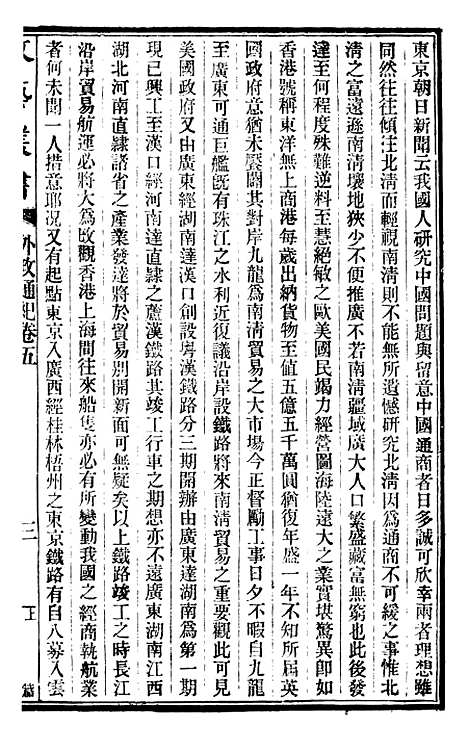 東京朝日新聞云我國人研究中國問題與留意中國通商者日多誠可欣幸兩者理想雖
同然往往傾注北淸而輕視南淸則不能無所遺憾研究北淸因爲通商不可緩之事惟北
淸之富遠遜南淸壤地狹少不便推廣不若南淸疆域廣大人口繁盛藏富無窮也此後發
達至何程度殊難逆料至慧絕敏之歐美國民竭力經營圖海陸遠大之業實堪驚異卽如
香港號稱東洋無上商港每歲出納貨物至値五億五千萬圓猶復年盛一年不知所屆英
國政府意猶未饜闢其對岸九龍爲南淸貿易之大市場今正督勵工事日夕不暇自九龍
至廣東可通巨艦旣有珠江之水利近復議沿岸設鐵路將來南淸貿易之重要觀此可見
美國政府又由廣東經湖南達漢口創設粤漢鐵路分三期開辦由廣東達湖南爲第一期
現已興工至漢口經河南達直隸之蘆漢鐵路其竣工行車之期想亦不遠廣東湖南江西
湖北河南直隸諸省之產業發達將於貿易別開新面可無疑矣以上鐵路竣工之時長江
沿岸貿易航運必將大爲改觀香港上海間往來船隻亦必有所變動我國之經商執航業
者何未聞一人措意耶況又有起點東京入廣西經桂林梧州之東京鐵路有自八募入雲
外敎通紀卷五
三